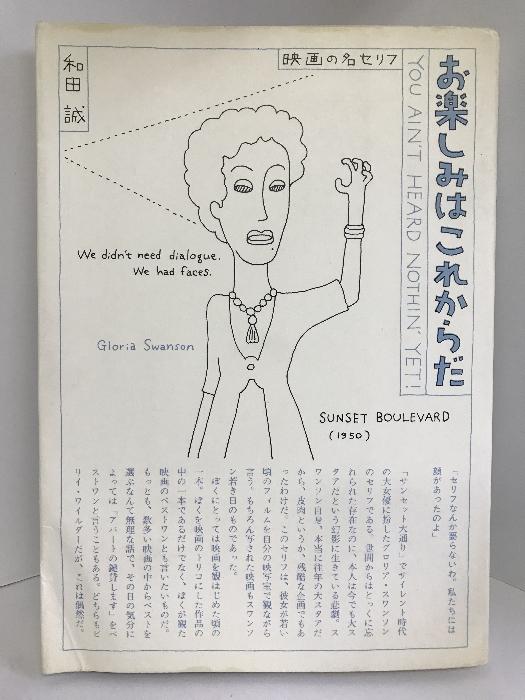 お楽しみはこれからだ
YOU AIN'T HEARD NOTHIN' YET!
映画の名セリフ
和田 誠
We didn't need dialogue.
We had faces.
Gloria Swanson
SUNSET BOULEVARD
(1950)
「セリフなんか要らないわ。私たちには
顔があったのよ」
「サンセット大通り」でサイレント時代
の大女優に扮したグロリア・スワンソン
のセリフである。世間からはとっくに忘
れられた存在なのに、本人は今でも大ス
タアだという幻影に生きている悲劇。ス
ワンソン自身、本当に往年の大スタアだ
から、皮肉というか、残酷な企画でもあ
ったわけだ。このセリフは、彼女が若い
頃のフィルムを自分の映写室で観ながら
言う。もちろん写された映画もスワンソ
ン若き日のものであった。
ぼくにとっては映画を観はじめた頃の
一本。ぼくを映画のトリコにした作品の
中の一本であるだけでなく、ぼくが観た
映画のベストワンとも言いたいものだ。
もっとも、数多い映画の中からベストを
選ぶなんて無理な話で、その日の気分に
よっては「アパートの鍵貸します」をベ
ストワンと言うこともある。どちらもビ
リイ・ワイルダーだが、これは偶然だ。